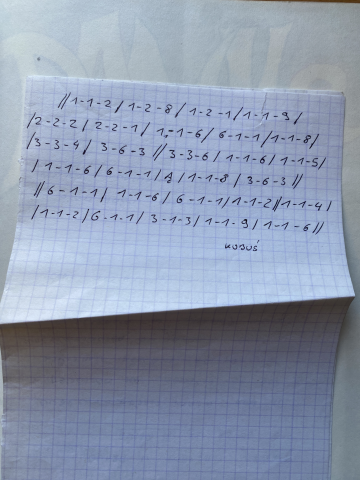 // 1-1-2 / 1-2-8 / 1-2-1 / 1-1-9 /
/ 2-2-2 / 2-2-1 / 1-1-6 / 6-1-1 / 1-1-8 /
/ 3-3-4 / 3-6-3 // 3-3-6 / 1-1-6 / 1-1-5 /
/ 1-1-6 / 6-1-1 / A / 1-1-8 / 3-6-3 //
// 6-1-1 / 1-1-6 / 6-1-1 / 1-1-2 // 1-1-4 /
/ 1-1-2 / 6-1-1 / 3-1-3 / 1-1-9 / 1-1-6 //
KUBUŚ